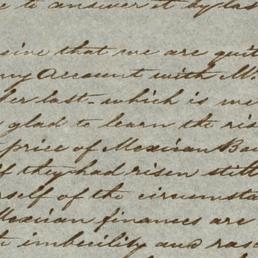 to answer it by las
sire that we are quit
my Account with M
ber last - which is me
glad to learn the ris
price of Mexican Bu
if they had risen still
rself of the circumsta
Mexican finances are
h imbecility and rasc